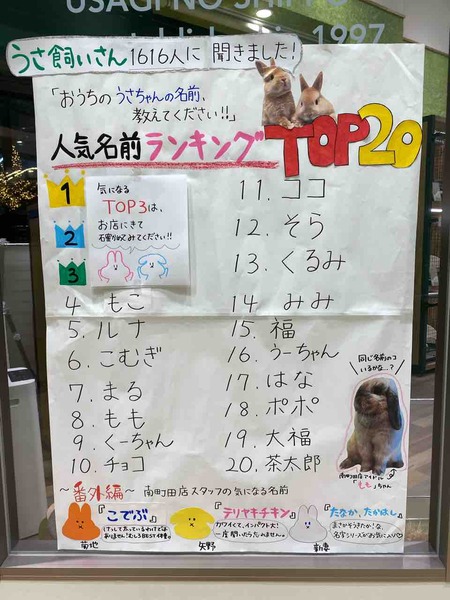 USAGI NO SHIPPO
established in 1997
うさ飼いさん1616人に聞きました!
「おうちのうさちゃんの名前、
教えてください!!」
人気名前ランキングTOP20
1
2
3
気になる
TOP3は、
お店にきて
確かめてみてください!!
4 もこ
5. ルナ
6. こむぎ
7. まる
8. もも
9. くーちゃん
10. チョコ
11. ココ
12. そら
13. くるみ
14 みみ
15. 福
16. うーちゃん
17. はな
18. ポポ
19. 大福
20. 茶太郎
同じ名前のコ
いるかな…?
南町田店アイドル
「もも」ちゃん
~番外編~ 南町田店スタッフの気になる名前
『こでぶ』
けっして太っているわけでは
ありません!むしろBEST体重。
菊地
『テリヤキチキン』
カワイくて、インパクト大!
一度聞いたら忘れません。
矢野
『たなか、たかはし』
まさかそうきたか!な、
名字シリーズがお気に入り♡
新妻